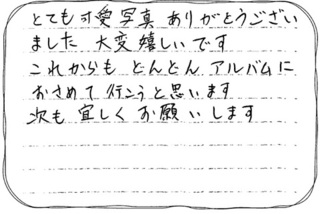 とても可愛写真 ありがとうござい
ました 大変嬉しいです
これからも どんどん アルバムに
おさめて 行こうと思います
次も 宜しく お願いします